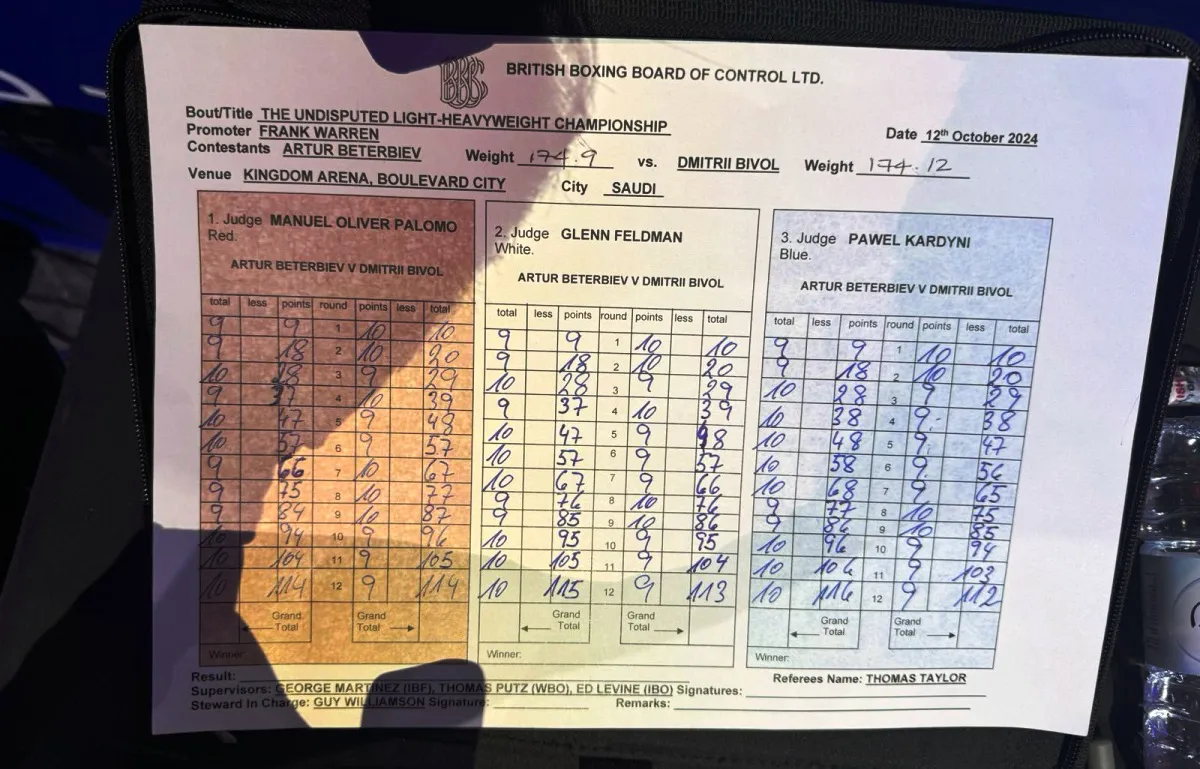 BBBC
BRITISH BOXING BOARD OF CONTROL LTD.
Bout/Title THE UNDISPUTED LIGHT-HEAVYWEIGHT CHAMPIONSHIP
Date 12th October 2024
Promoter FRANK WARREN
Contestants ARTUR BETERBIEV Weight 174.9 vs. DMITRII BIVOL Weight 174.12
Venue KINGDOM ARENA, BOULEVARD CITY City SAUDI
1. Judge MANUEL OLIVER PALOMO
Red.
ARTUR BETERBIEV V DMITRII BIVOL
total less points round points less total
9 9 1 10 10
9 18 2 10 20
10 28 3 9 29
9 37 4 10 39
10 47 5 9 48
10 57 6 9 57
9 66 7 10 67
9 75 8 10 77
9 84 9 10 87
10 94 10 9 96
10 104 11 9 105
10 114 12 9 114
Grand Grand
Total Total
Winner:
2. Judge GLENN FELDMAN
White.
ARTUR BETERBIEV V DMITRII BIVOL
total less points round points less total
9 9 1 10 10
9 18 2 10 20
10 28 3 9 29
9 37 4 10 39
10 47 5 9 48
10 57 6 9 57
10 67 7 9 66
9 76 8 10 76
9 85 9 10 86
10 95 10 9 95
10 105 11 9 104
10 115 12 9 113
Grand Grand
Total Total
Winner:
3. Judge PAWEL KARDYNI
Blue.
ARTUR BETERBIEV V DMITRII BIVOL
total less points round points less total
9 9 1 10 10
9 18 2 10 20
10 28 3 9 29
10 38 4 9 38
10 48 5 9 47
10 58 6 9 56
10 68 7 9 65
9 77 8 10 75
9 86 9 10 85
10 96 10 9 94
10 106 11 9 103
10 116 12 9 112
Grand Grand
Total Total
Winner:
Result:
Referees Name: THOMAS TAYLOR
Supervisors: GEORGE MARTINEZ (IBF), THOMAS PUTZ (WBO), ED LEVINE (IBO) Signatures:
Steward In Charge: GUY WILLIAMSON Signature: Remarks: